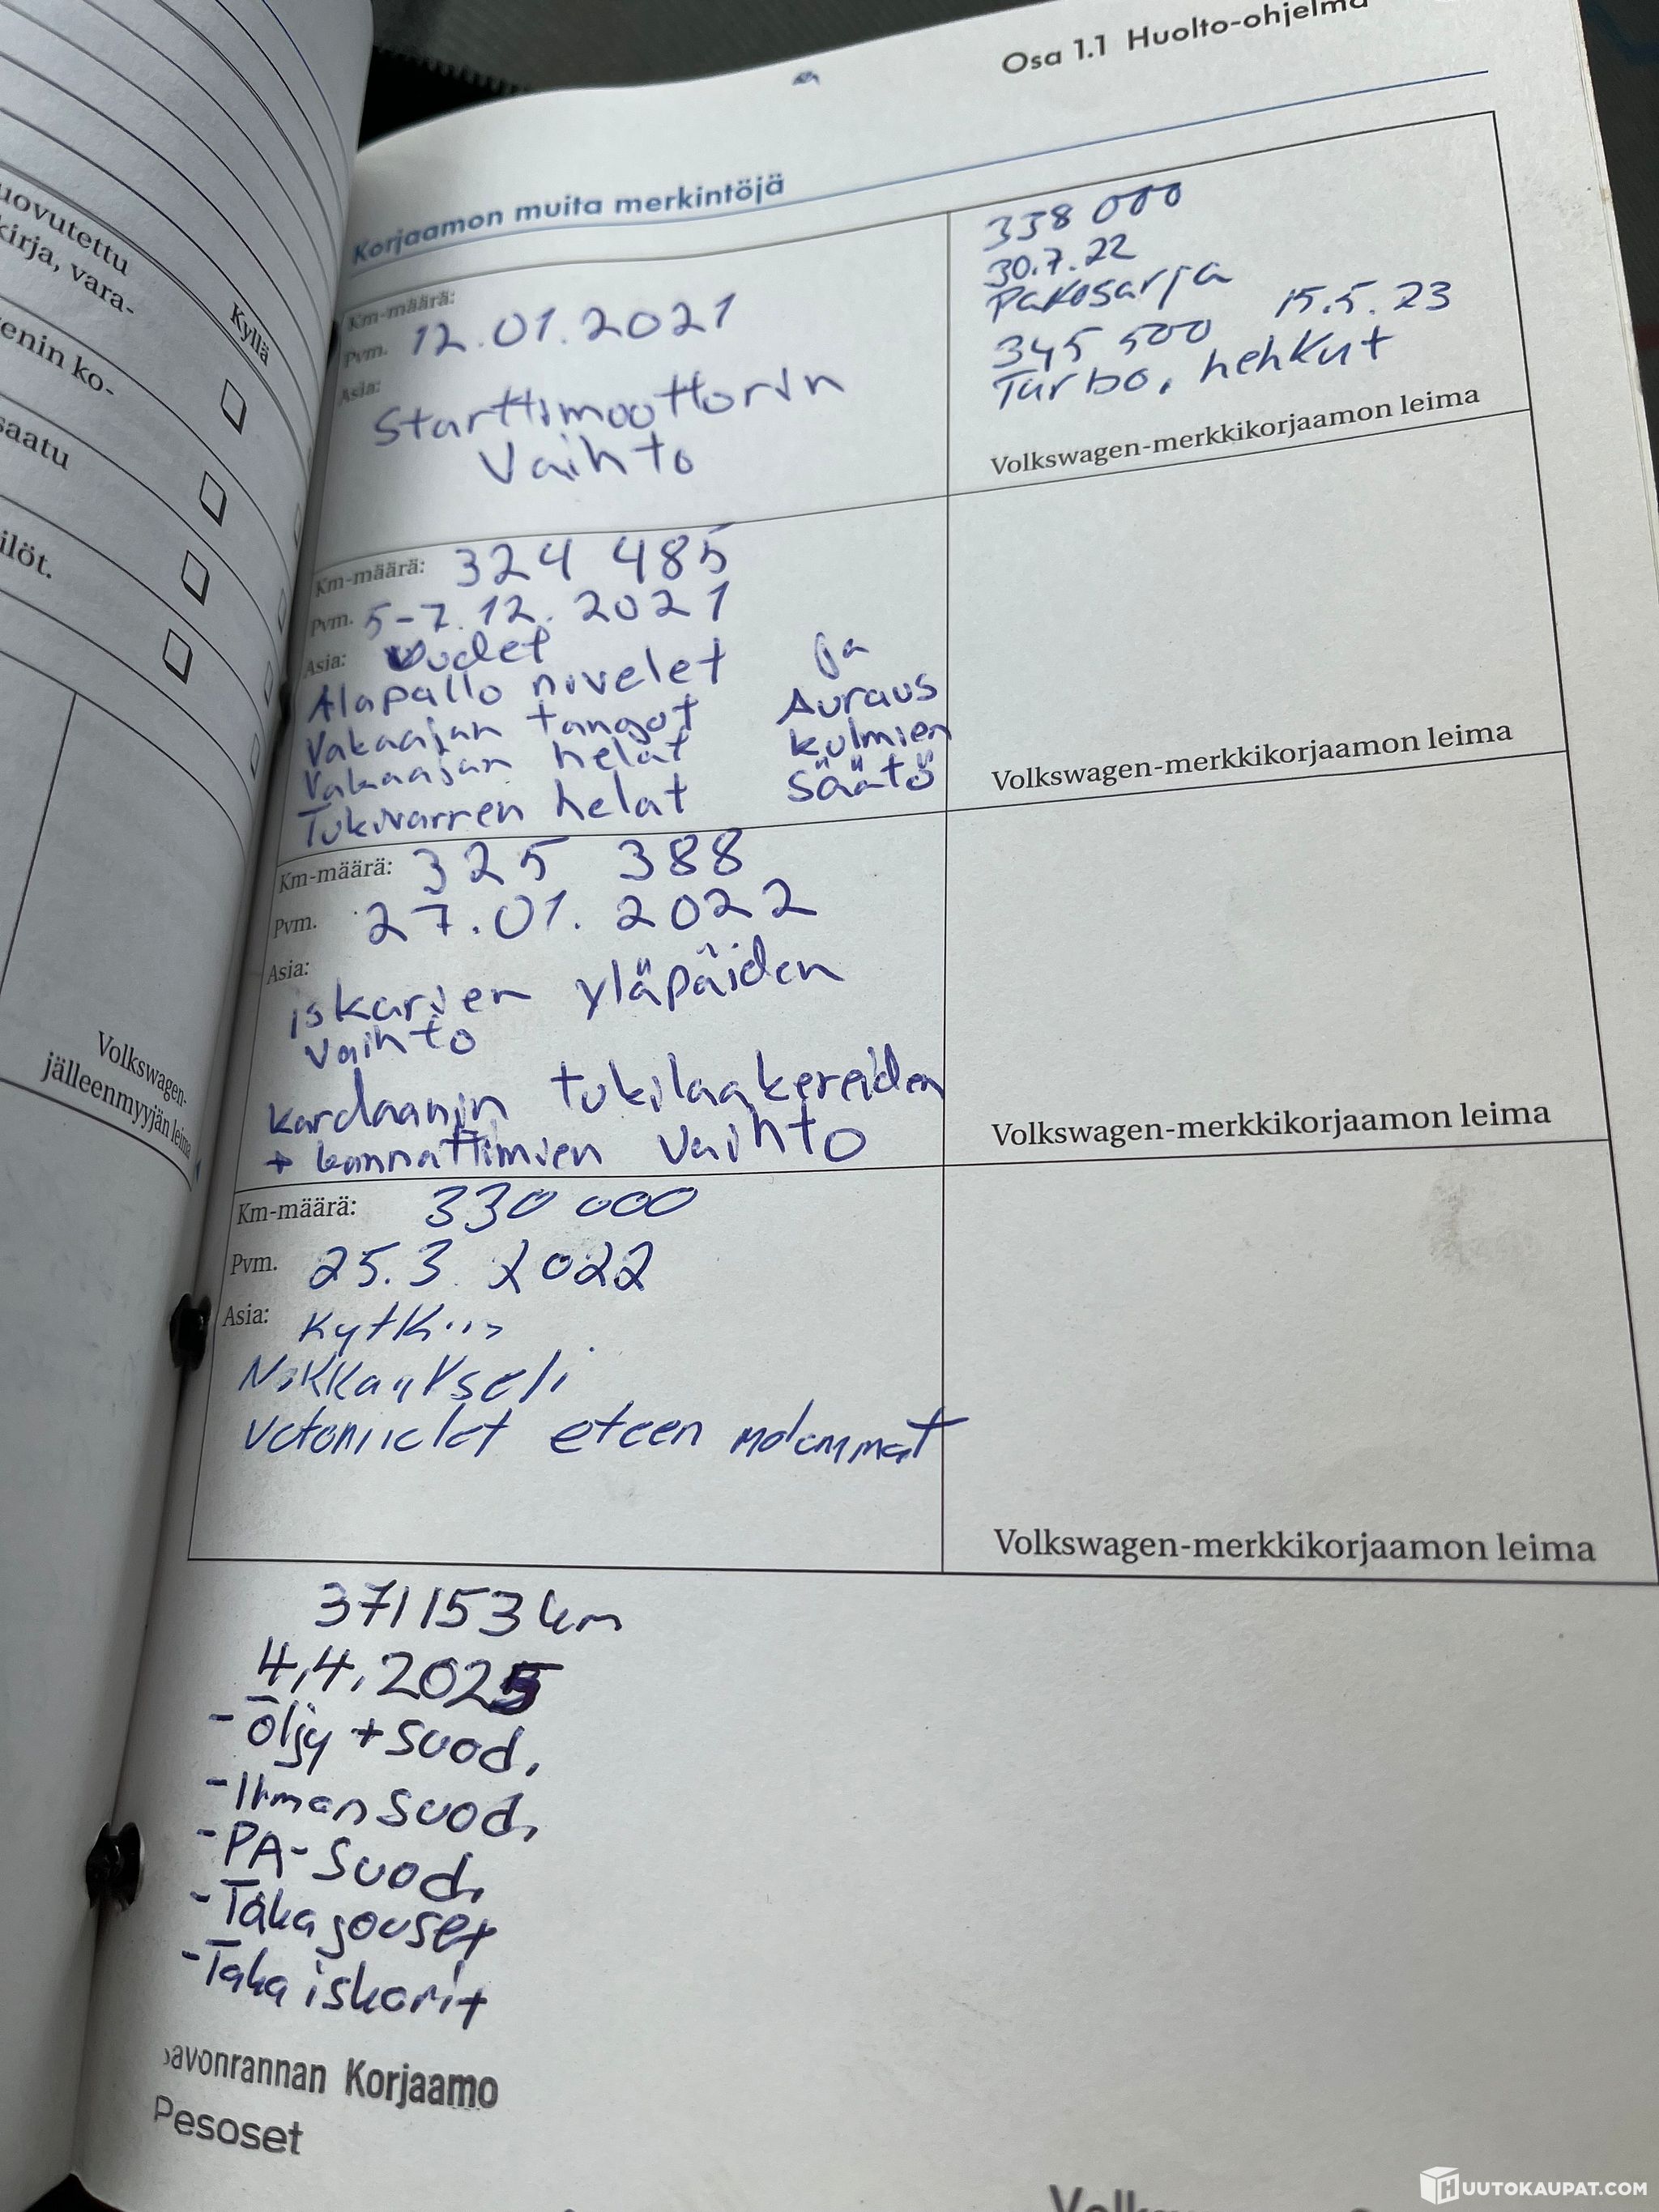 Osa 1.1 Huolto-ohjelma
Korjaamon muita merkintöjä
Km-määrä:
Pvm. 12.01.2021
Asia:
Starttimoottorin
Vaihto
338 000
30.7.22
Pakosarja
345 500 15.5.23
Turbo, hehkut
Volkswagen-merkkikorjaamon leima
Km-määrä: 324 485
Pvm. 5-7.12.2021
Asia: Uudet
Alapallo nivelet ja
Vakaajan tangot Auraus
Vakaajan helat kulmien
Tukivarren helat säätö
Volkswagen-merkkikorjaamon leima
Km-määrä: 325 388
Pvm. 27.01.2022
Asia:
iskarien yläpäiden
vaihto
kardaanin tukilaakereiden
+ kannattimien vaihto
Volkswagen-merkkikorjaamon leima
Km-määrä: 330 000
Pvm. 25.3.2022
Asia: Kytkin
Nokkaakseli
vetonivelet eteen molemmat
Volkswagen-merkkikorjaamon leima
371153 km
4.4.2025
- Öljy + suod.
- Ilman suod.
- PA-suod.
- Taka jouset
- Taka iskarit
avonrannan Korjaamo
Pesoset
uovutettu
kirja, vara-
Kyllä
enin ko-
saatu
ilöt.
Volkswagen-
jälleenmyyjän leima
HUUTOKAUPAT.COM